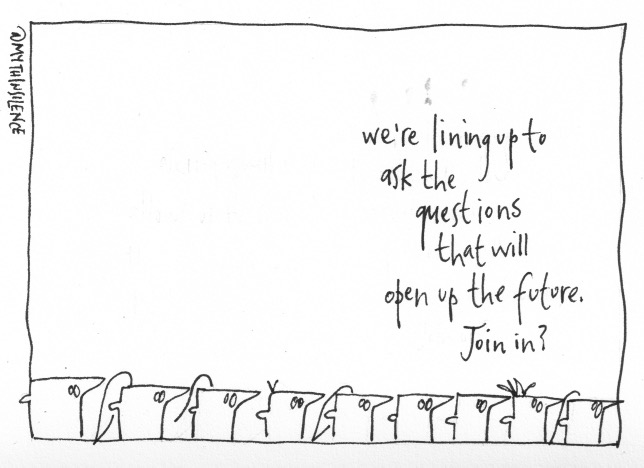 @MYTHINSILENCE
we're lining up to
ask the
questions
that will
open up the future.
Join in?